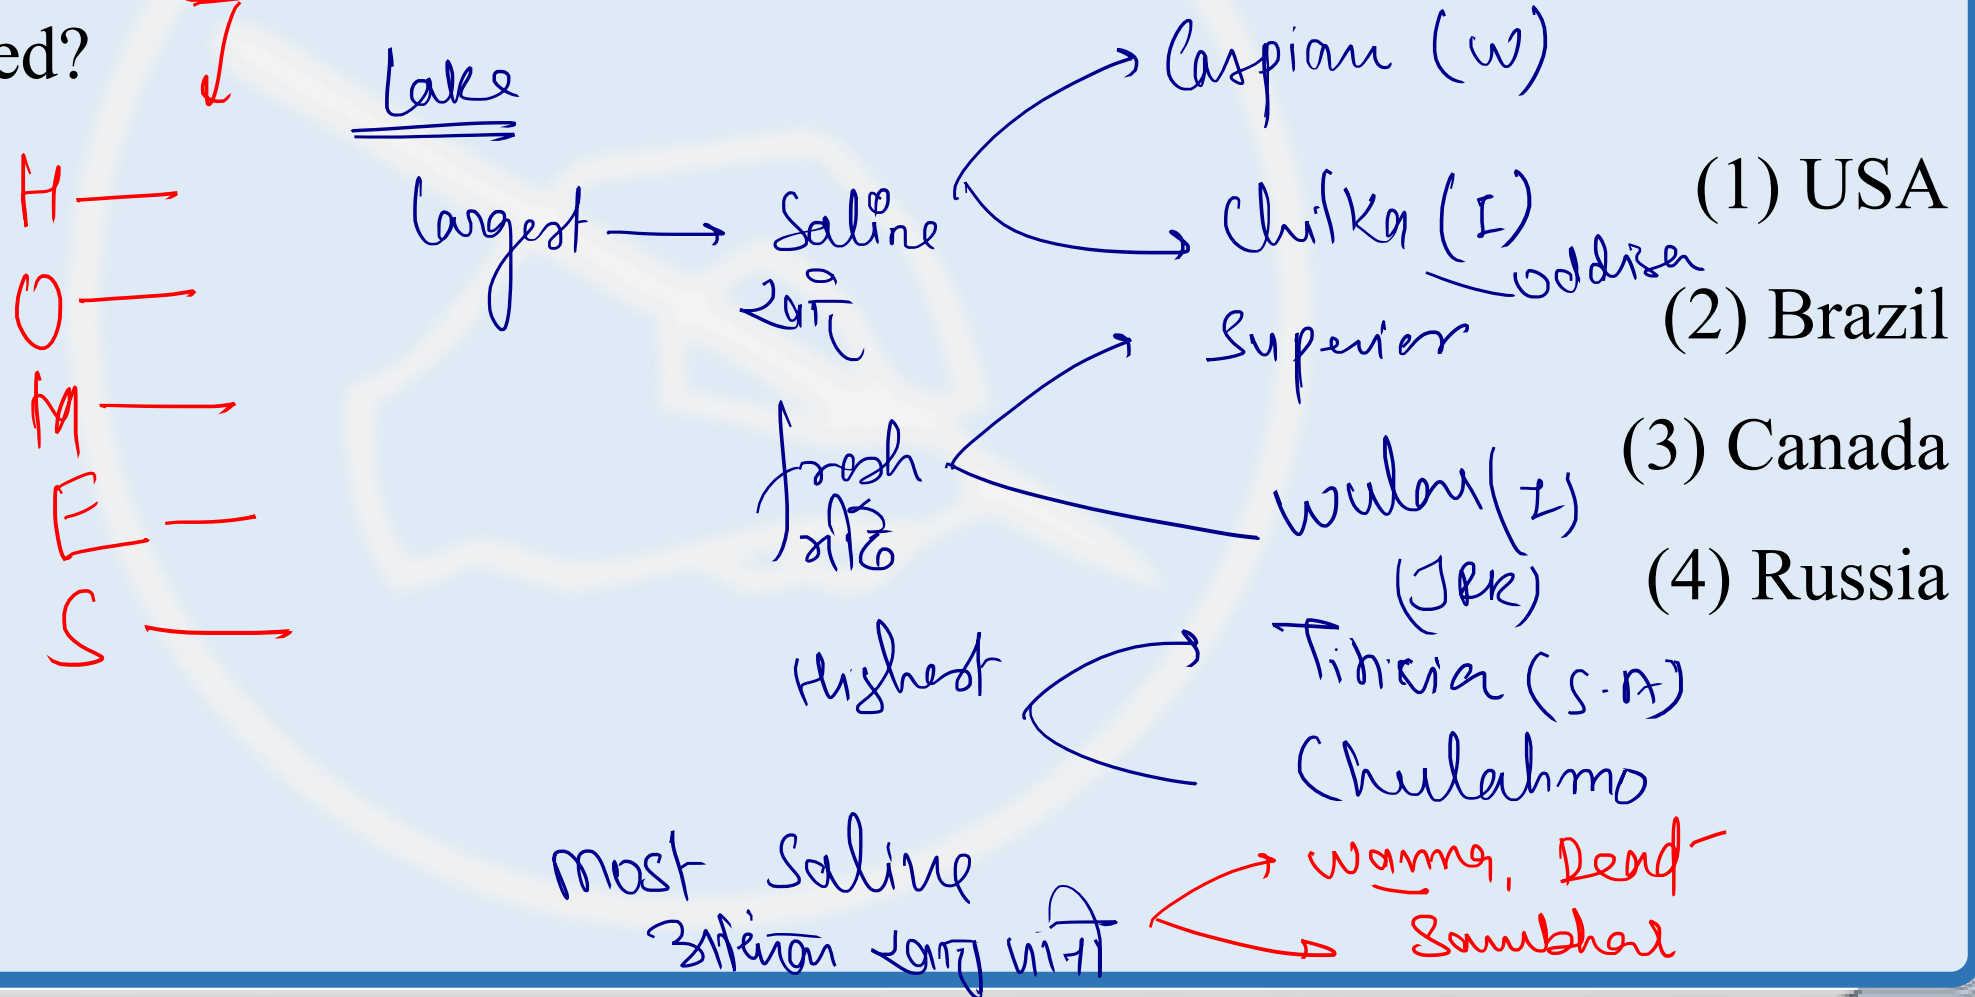 ed?
Lake
Largest → Saline
खारे
Caspian (W)
Chilka (I)
oddisa
fresh
मीठे
Superior
wular (I)
(J&K)
Highest
Titicia (S.A)
Chulahmo
most Saline
अधिकतम खारा पानी
wanna, Dead
Sambhar
H
O
M
E
S
(1) USA
(2) Brazil
(3) Canada
(4) Russia